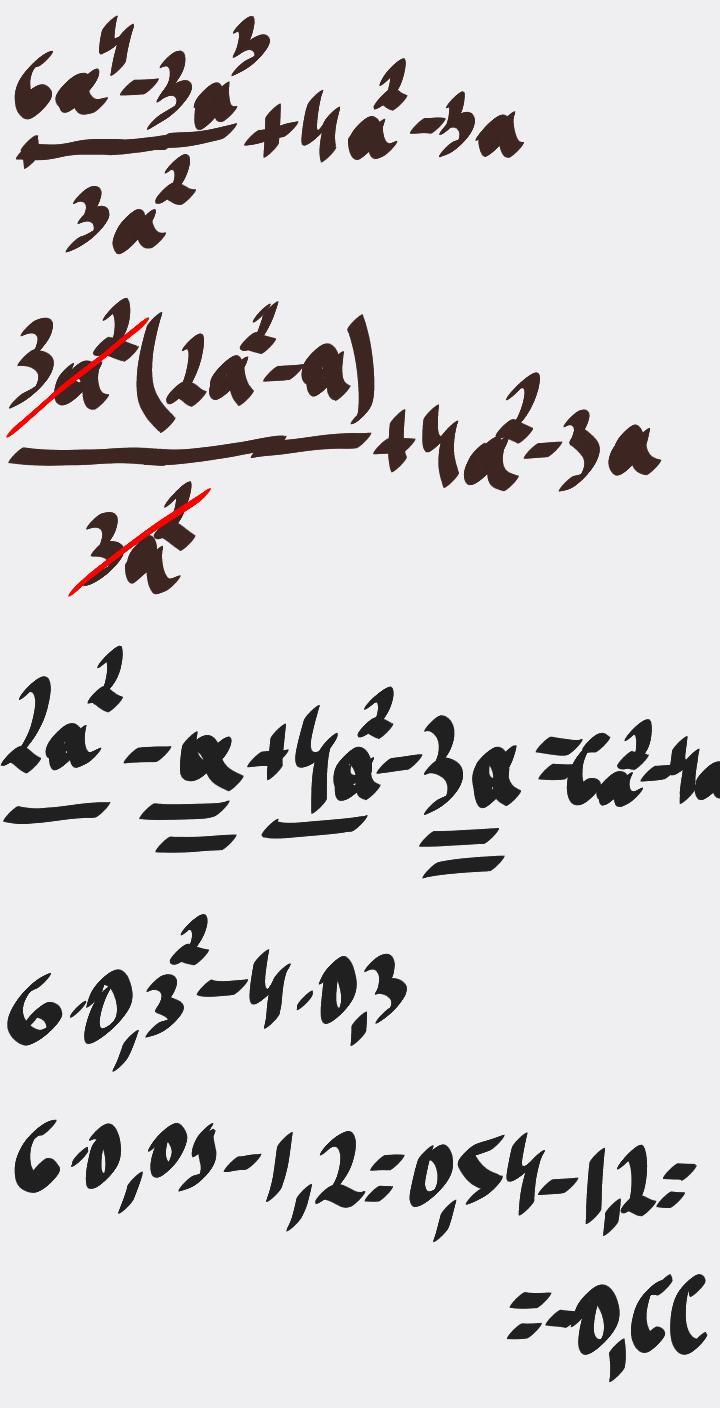 6a⁴-3a³
+4a²-3a
3a²
3a²(2a²-a)
+4a²-3a
3a²
2a²-a+4a²-3a=6a²-4a
6·0,3²-4·0,3
6·0,09-1,2=0,54-1,2=
=-0,66